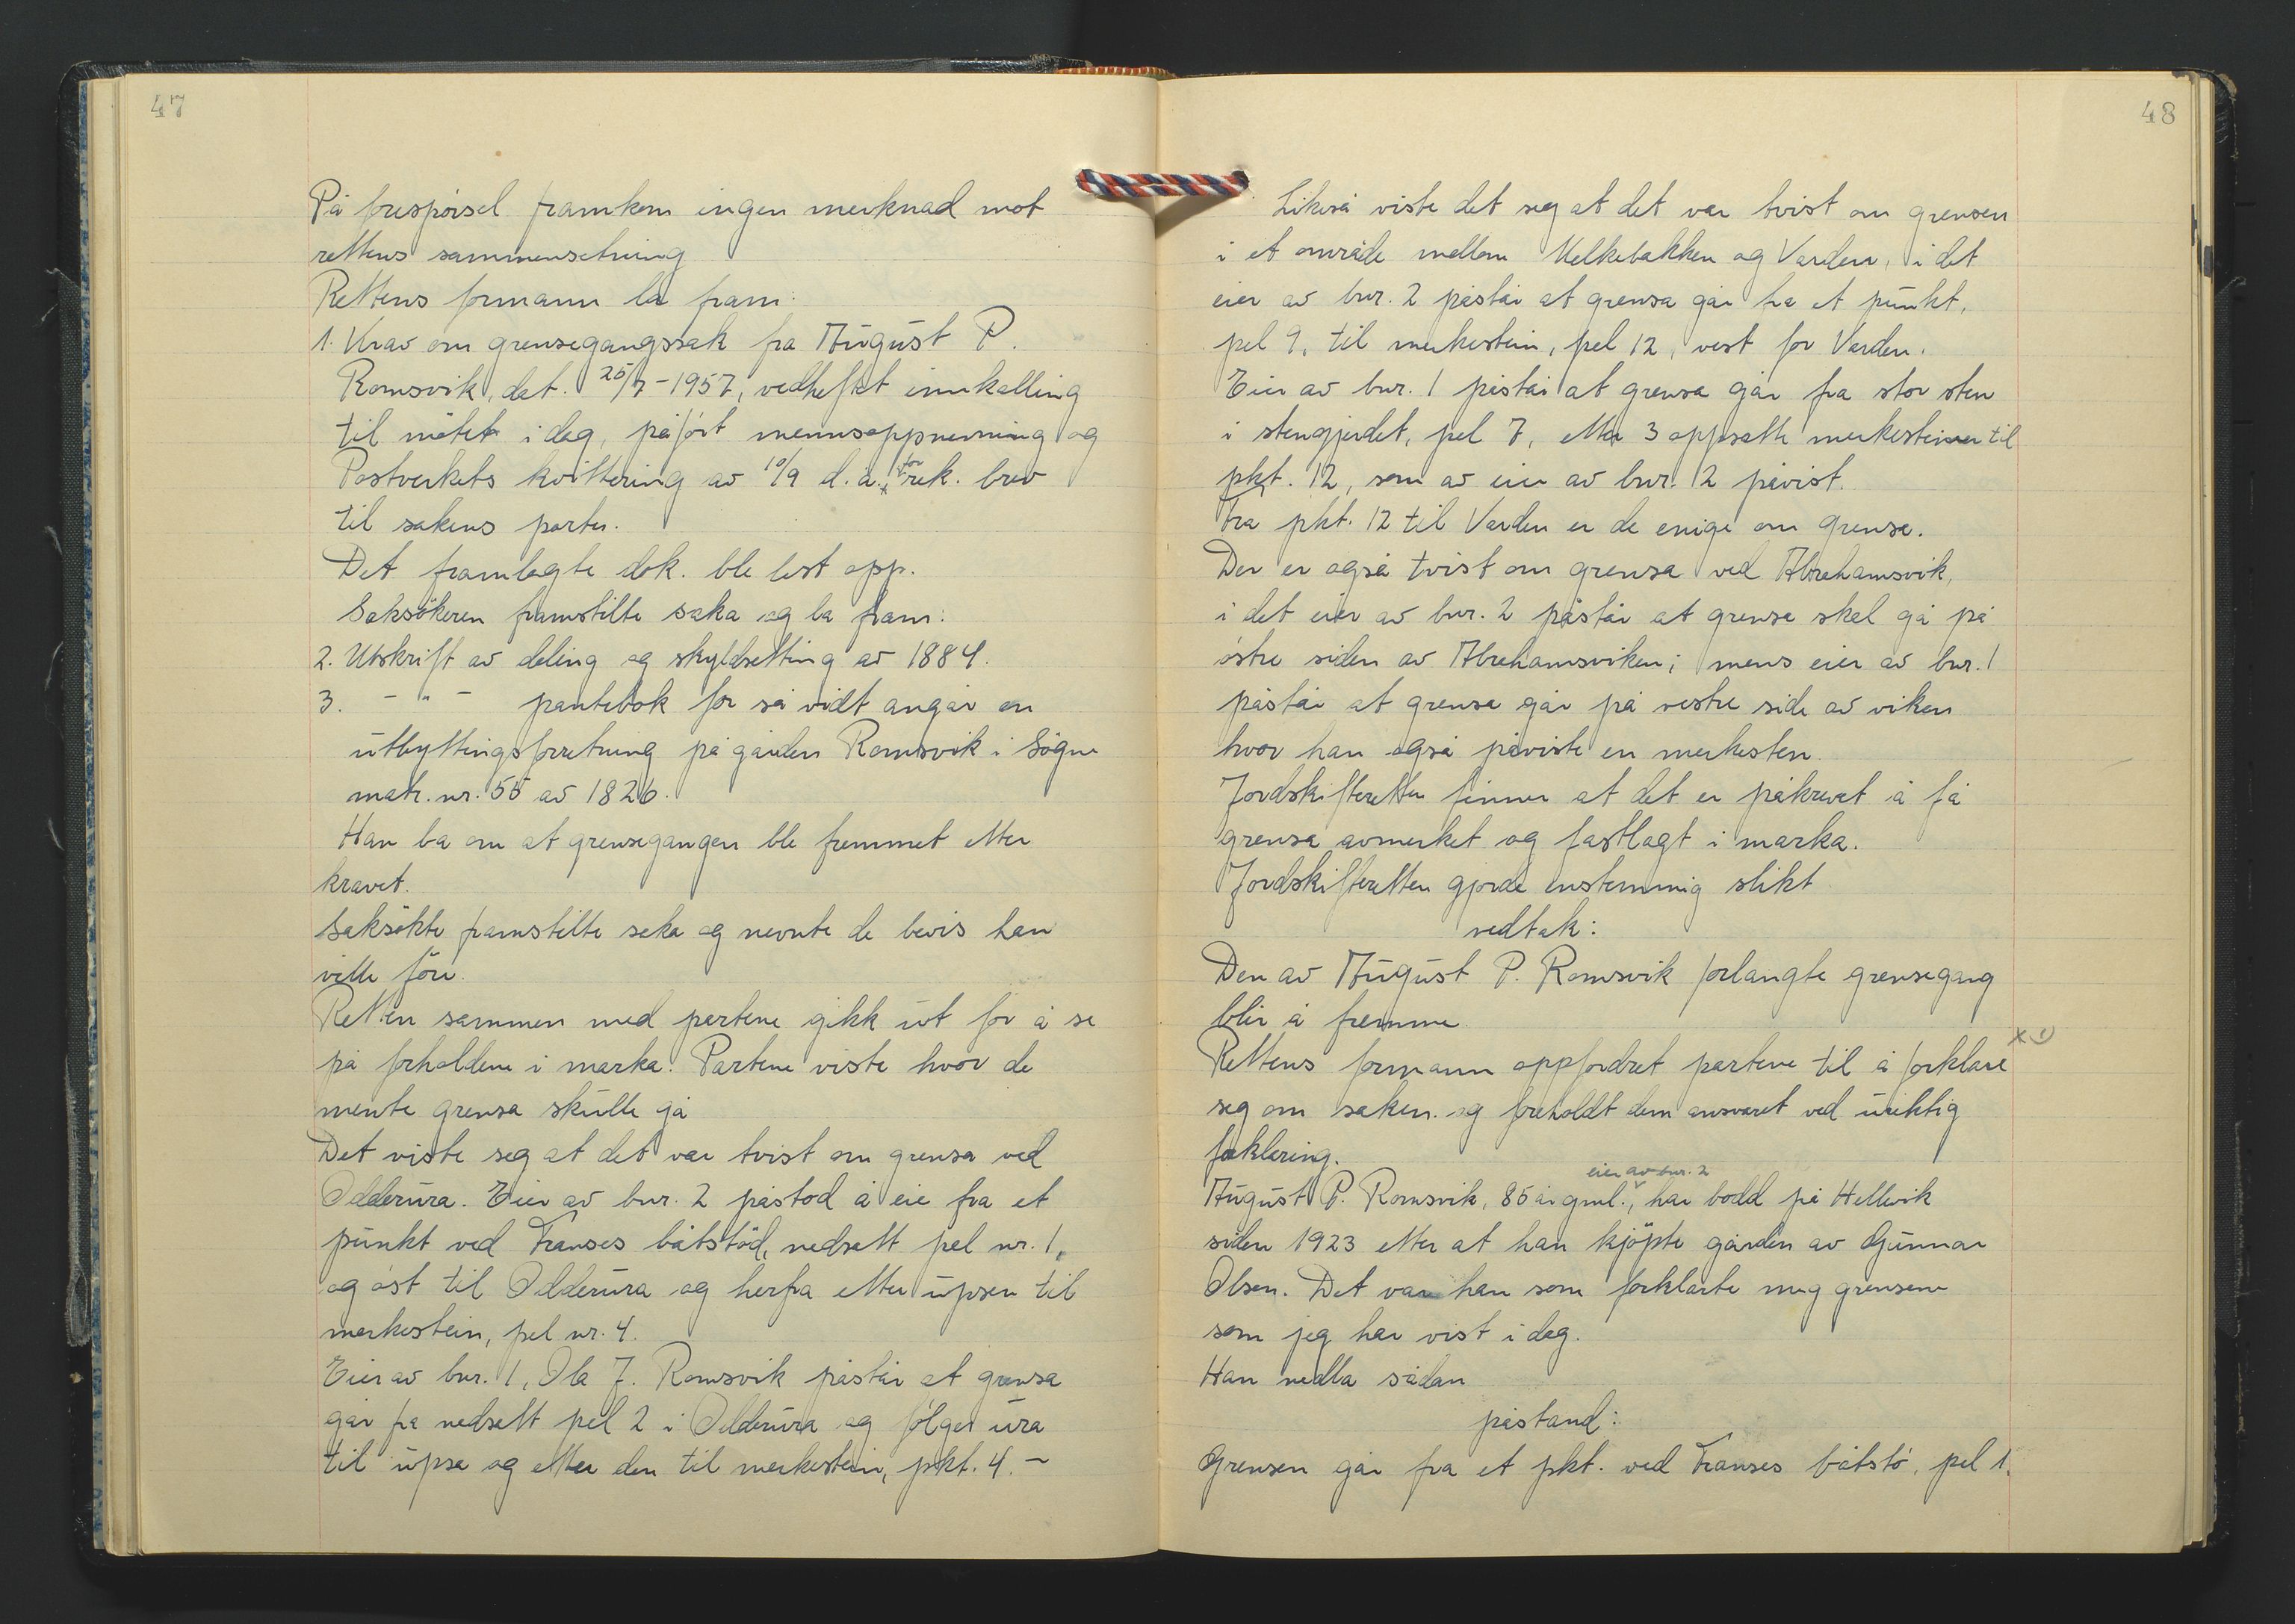 47
På forespörsel framkom ingen merknad mot
rettens sammensetning
Rettens formann la fram:
1. Krav om grensegangssak fra August P.
Romsvik, dat. 25/7-1957, vedheftet innkalling
til mötet i dag, påfört mennsoppnevning og
Postverkets kvittering av 10/9 d.å. for rek. brev
til sakens parter.
Det framlagte dok. ble lest opp.
Saksökeren framstilte saka og la fram:
2. Utskrift av deling og skyldsetting av 1884.
3. - " - pantebok for så vidt angår en
utbyttingsforretning på gården Romsvik i Sögne
matr. nr. 55 av 1826.
Han ba om at grensegangen ble fremmet etter
kravet.
Saksökte framstilte saka og nevnte de bevis han
ville före.
Retten sammen med partene gikk ut for å se
på forholdene i marka. Partene viste hvor de
mente grensa skulle gå
Det viste seg at det var tvist om grensa ved
Odderura. Eier av bnr. 2 påstod å eie fra et
punkt ved Franses båtstöd, nedsatt pel nr. 1,
og öst til Odderura og herfra etter upsen til
merkestein, pel nr. 4.
Eier av bnr. 1, Ola J. Romsvik påstår at grensa
går fra nedsatt pel 2 i Odderura og fölger ura
til upsa og etter den til merkestein, pkt. 4. -
48
Likeså viste det seg at det var tvist om grensen
i et område mellom Melkebakken og Varden, i det
eier av bnr. 2 påstår at grensa går fra et punkt,
pel 9, til merkestein, pel 12, vest for Varden.
Eier av bnr. 1 påstår at grensa går fra stor sten
i stengjerdet, pel 7, etter 3 oppsatte merkesteiner til
pkt. 12, som av eier av bnr. 2 påvist.
Fra pkt. 12 til Varden er de enige om grensa.
Der er også tvist om grensa ved Abrahamsvik,
i det eier av bnr. 2 påstår at grensa skal gå på
östre siden av Abrahamsviken; mens eier av bnr. 1
påstår at grensa går på vestre side av viken
hvor han også påviste en merkesten.
Jordskifteretten finner at det er påkrevet å få
grensa avmerket og fastlagt i marka.
Jordskifteretten gjorde enstemmig slikt
vedtak:
Den av August P. Romsvik forlangte grensegang
blir å fremme.
x 1)
Rettens formann oppfordret partene til å forklare
seg om saken og foreholdt dem ansvaret ved uriktig
forklaring.
eier av bnr. 2
August P. Romsvik, 85 år gml., har bodd på Hellevik
siden 1923 etter at han kjöpte gården av Gunnar
Olsen. Det var han som forklarte meg grensene
som jeg har vist i dag.
Han nedla sådan
påstand:
Grensen går fra et pkt. ved Franses båtstö, pel 1,